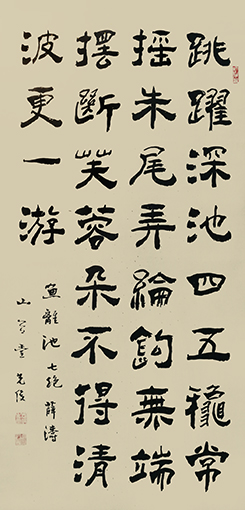 跳躍深池四五龝常
搖朱尾弄綸鉤無端
擺斷芙蓉朵不得清
波更一游
魚離池 七絕 薛濤